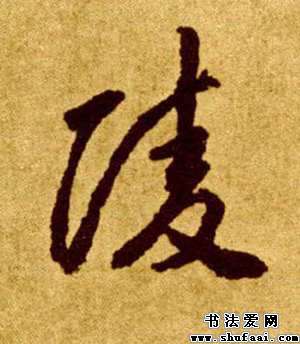 陵
书法爱网
www.shufaai.com